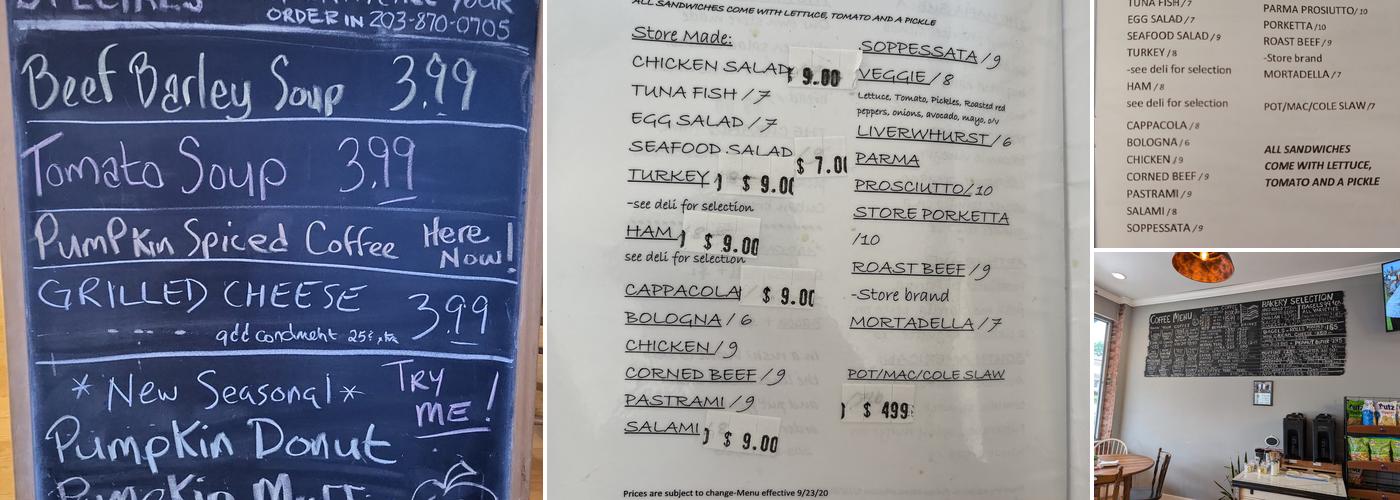 ORDER IN 203-870-0705
Beef Barley Soup 3.99
Tomato Soup 3.99
PumPKin Spiced Coffee Here Now!
GRILLED CHEESE 3.99
add condment 25¢
*New Seasonal* TRY ME!
Pumpkin Donut
ALL SANDWICHES COME WITH LETTUCE, TOMATO AND A PICKLE
Store Made:
CHICKEN SALAD $ 9.00
TUNA FISH / 7
EGG SALAD / 7
SEAFOOD SALAD $ 7.00
TURKEY $ 9.00
-see deli for selection
HAM $ 9.00
see deli for selection
CAPPACOLA $ 9.00
BOLOGNA / 6
CHICKEN / 9
CORNED BEEF / 9
PASTRAMI / 9
SALAMI $ 9.00
SOPPESSATA / 9
VEGGIE / 8
Lettuce, Tomato, Pickles, Roasted red
peppers, onions, avocado, mayo, o/v
LIVERWHURST / 6
PARMA
PROSCIUTTO/10
STORE PORKETTA
/10
ROAST BEEF / 9
-Store brand
MORTADELLA / 7
POT/MAC/COLE SLAW
$ 499
Prices are subject to change-Menu effective 9/23/20
TUNA FISH / 7
EGG SALAD / 7
SEAFOOD SALAD / 9
TURKEY / 8
-see deli for selection
HAM / 8
see deli for selection
CAPPACOLA / 8
BOLOGNA / 6
CHICKEN / 9
CORNED BEEF / 9
PASTRAMI / 9
SALAMI / 8
SOPPESSATA / 9
PARMA PROSIUTTO/ 10
PORKETTA /10
ROAST BEEF / 9
-Store brand
MORTADELLA / 7
POT/MAC/COLE SLAW /7
ALL SANDWICHES
COME WITH LETTUCE,
TOMATO AND A PICKLE
COFFEE MENU
BAKERY SELECTION